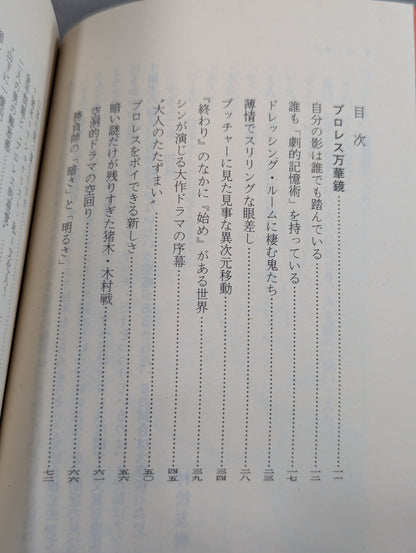 目次
プロレス万華鏡……一一
自分の影は誰でも踏んでいる……一二
誰も「劇的記憶術」を持っている……一七
ドレッシング・ルームに棲む鬼たち……二三
薄情でスリリングな眼差し……二八
ブッチャーに見た見事な異次元移動……三四
『終わり』のなかに『始め』がある世界……三九
シンが演じる大作ドラマの序幕……四五
〝大人のたたずまい〟……五〇
プロレスをポイできる新しさ……五六
暗い謎だけが残りすぎた猪木・木村戦……六一
空洞的ドラマの空回り……六六
勝負師の「暗さ」と「明るさ」……七二